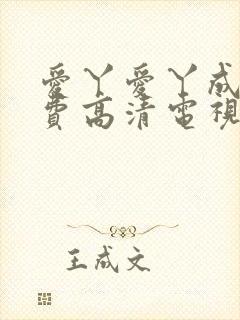 愛丫愛丫成
費高清電視
王成文